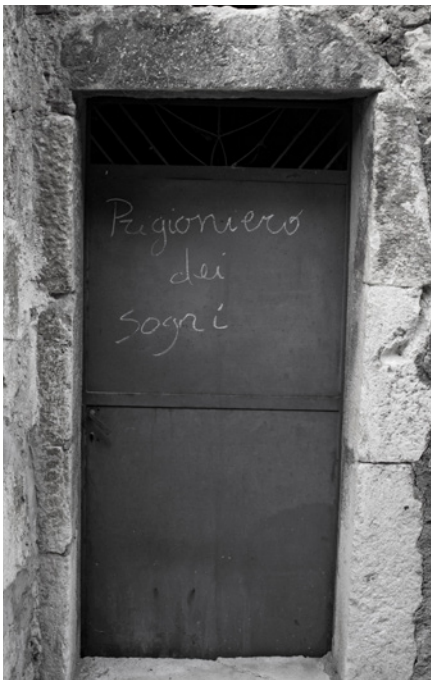 Prigioniero
dei
sogni